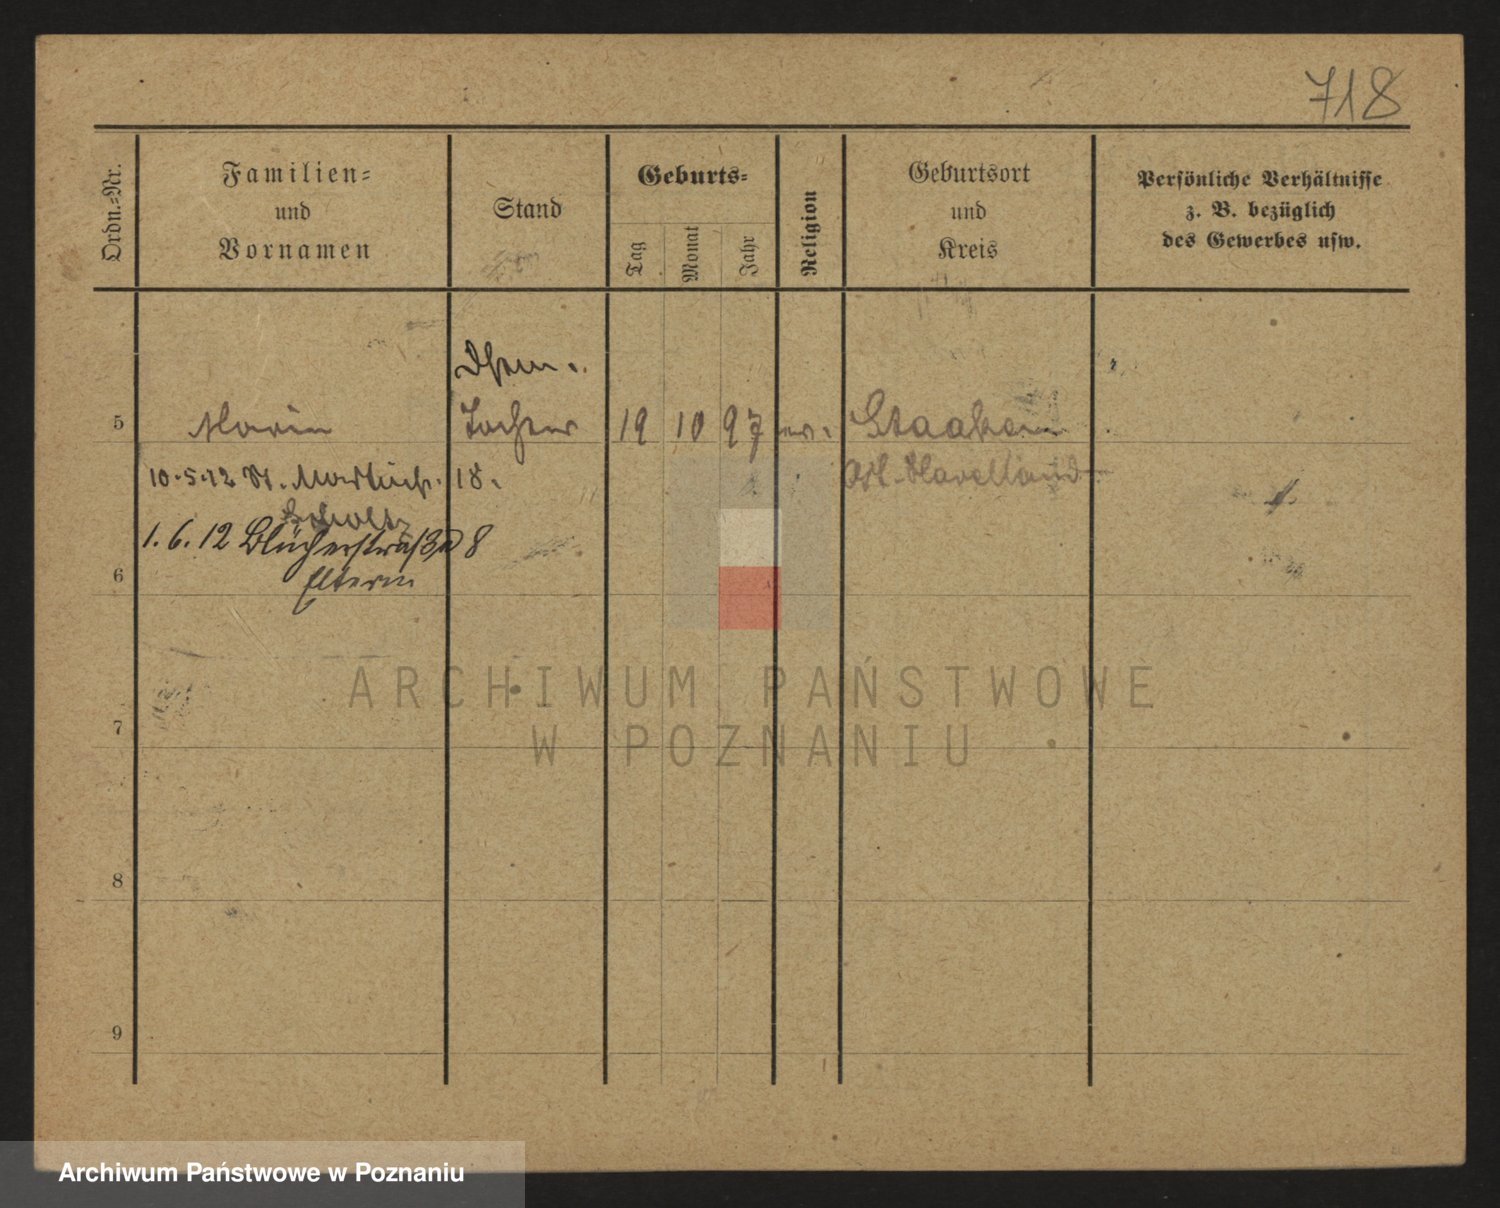 718
Ordn.=Nr.
Familien=
und
Vornamen
Stand
Geburts=
Tag
Monat
Jahr
Religion
Geburtsort
und
Kreis
Persönliche Verhältnisse
z. B. bezüglich
des Gewerbes usw.
5 Marie Tochter 19 10 97 ev. Staaken
10.5.12 St. Martinstr. 18. Ost-Havelland
Scholz
1.6.12 Blücherstraße 8
6 Eltern
ARCHIWUM PAŃSTWOWE
W POZNANIU
7
8
9
Archiwum Państwowe w Poznaniu